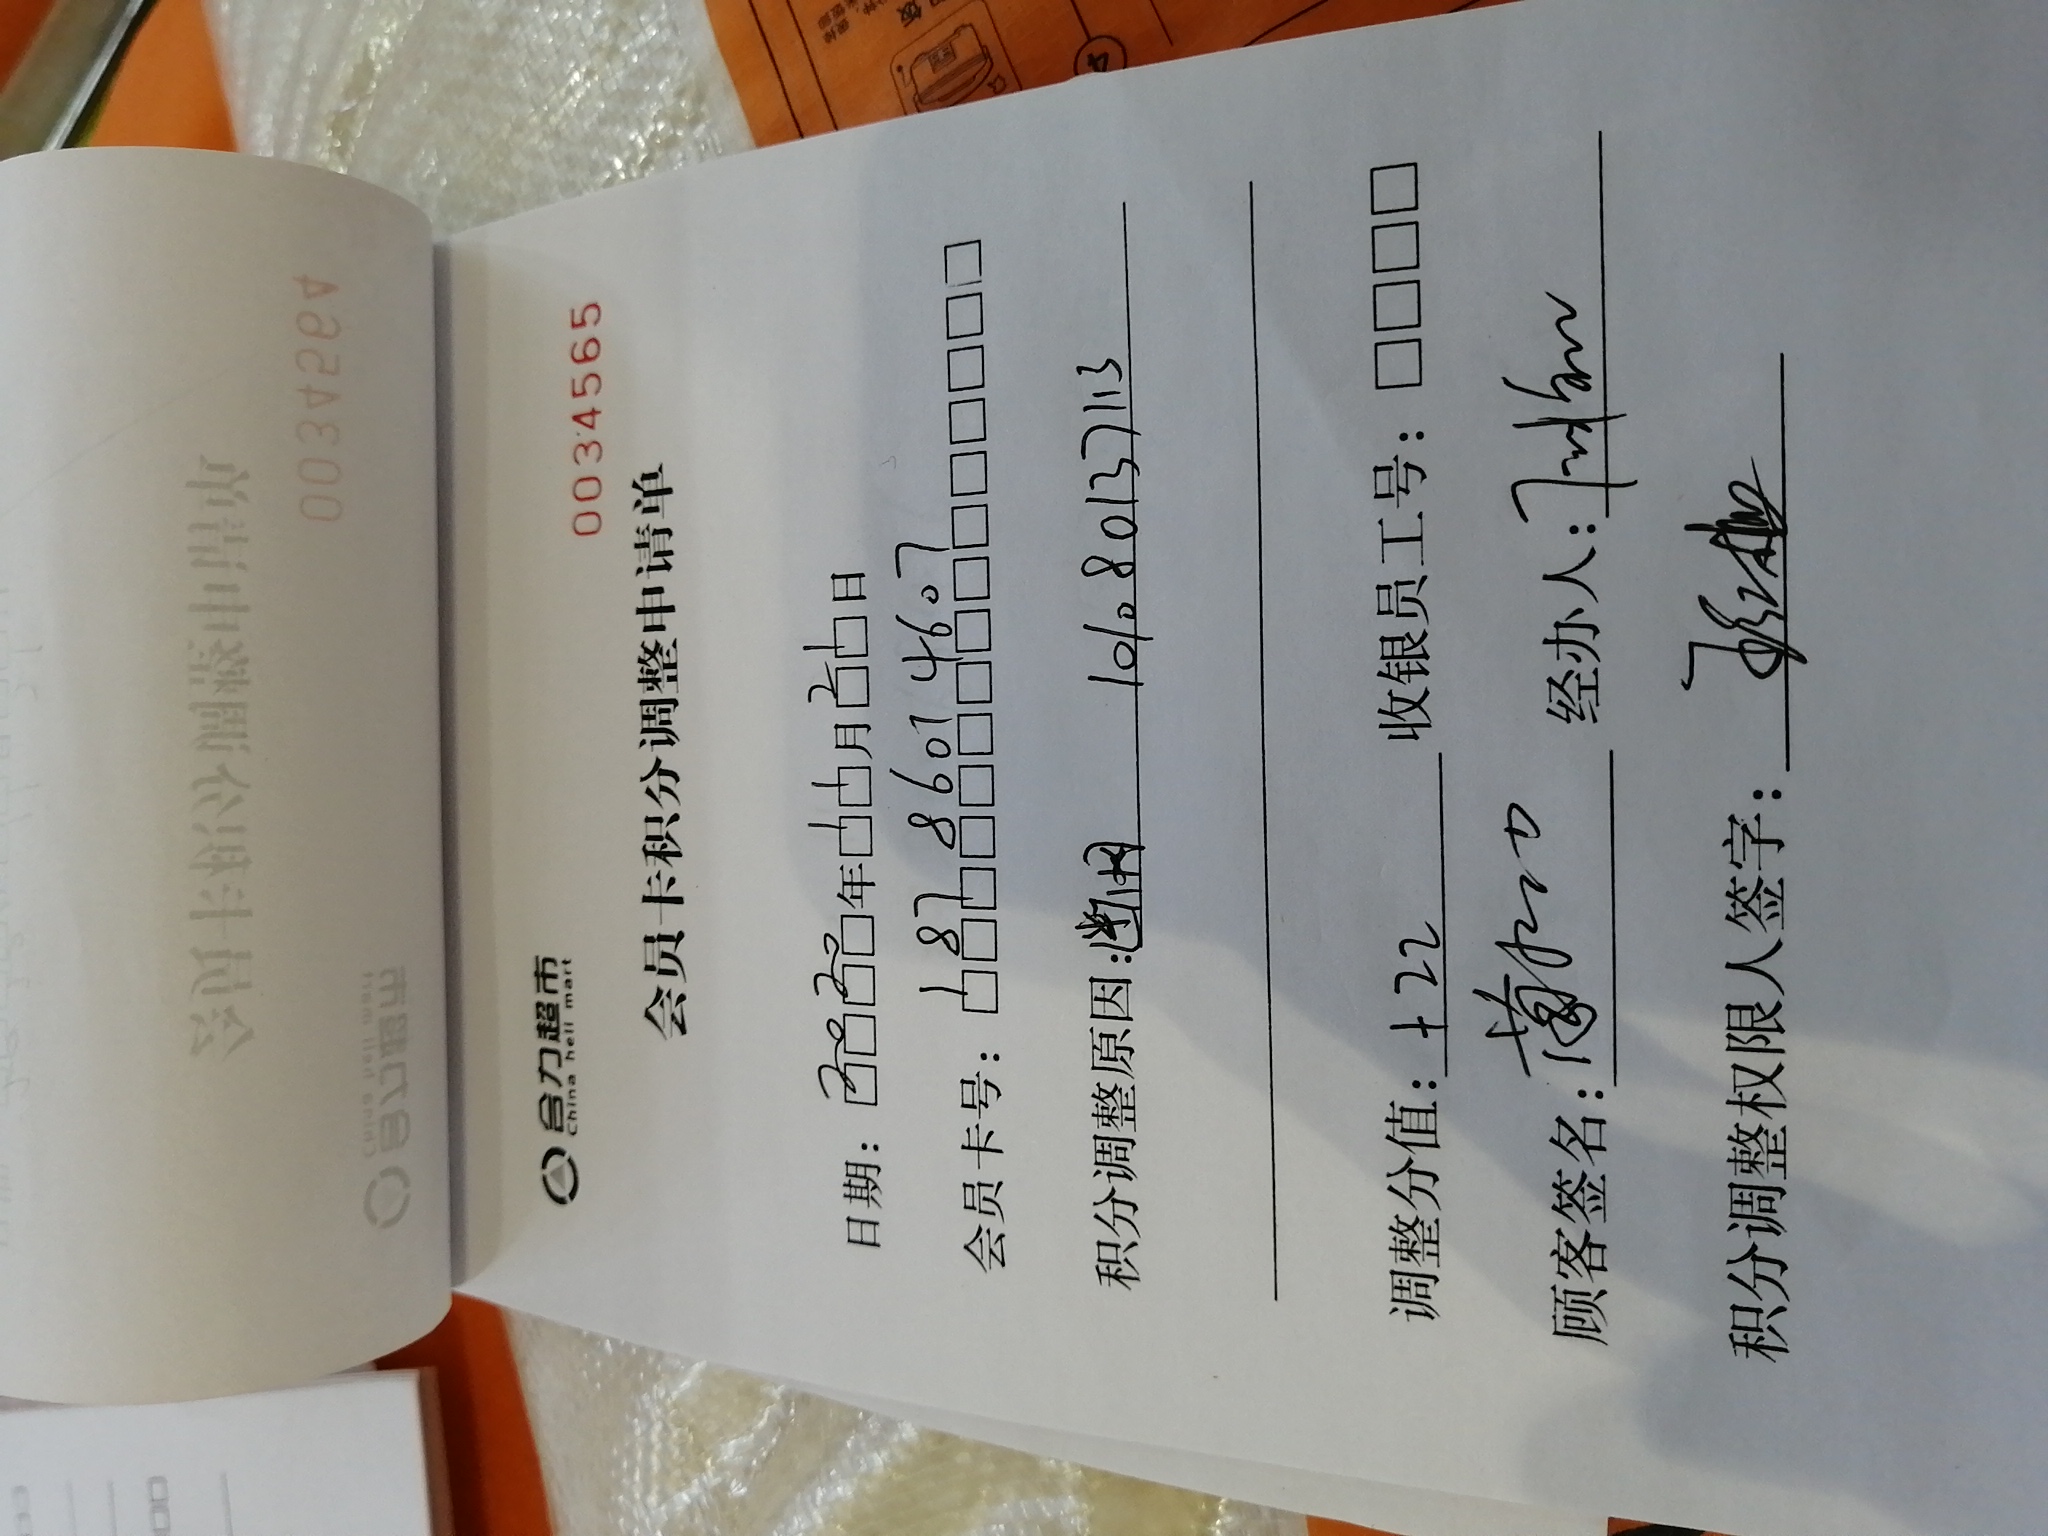 合力超市
China heli mart
0034565
会员卡积分调整申请单
日期：2020年11月21日
会员卡号：18786014607
积分调整原因：断网 101。80137113
调整分值：+22 收银员工号：
顾客签名： 经办人：
积分调整权限人签字：
0034564
会员卡积分调整申请单
合力超市
China heli mart